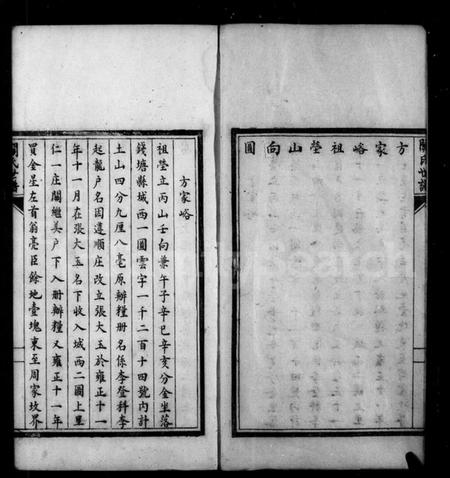 方家峪祖塋山向圖
方家峪
祖塋立丙山壬向兼午子辛巳辛亥分金坐落
錢塘縣城西一圖雲字一千二百十四號內計
土山四分九厘八毫原辦糧册名係李登科李
起龍户名因遵順庄改立張大玉於雍正十一
年十一月在張大玉名下收入城西二圖上里
仁一庄闗繼美户下入册辦糧又雍正十一年
買金星左首翁亮臣餘地壹塊東至周家坟界